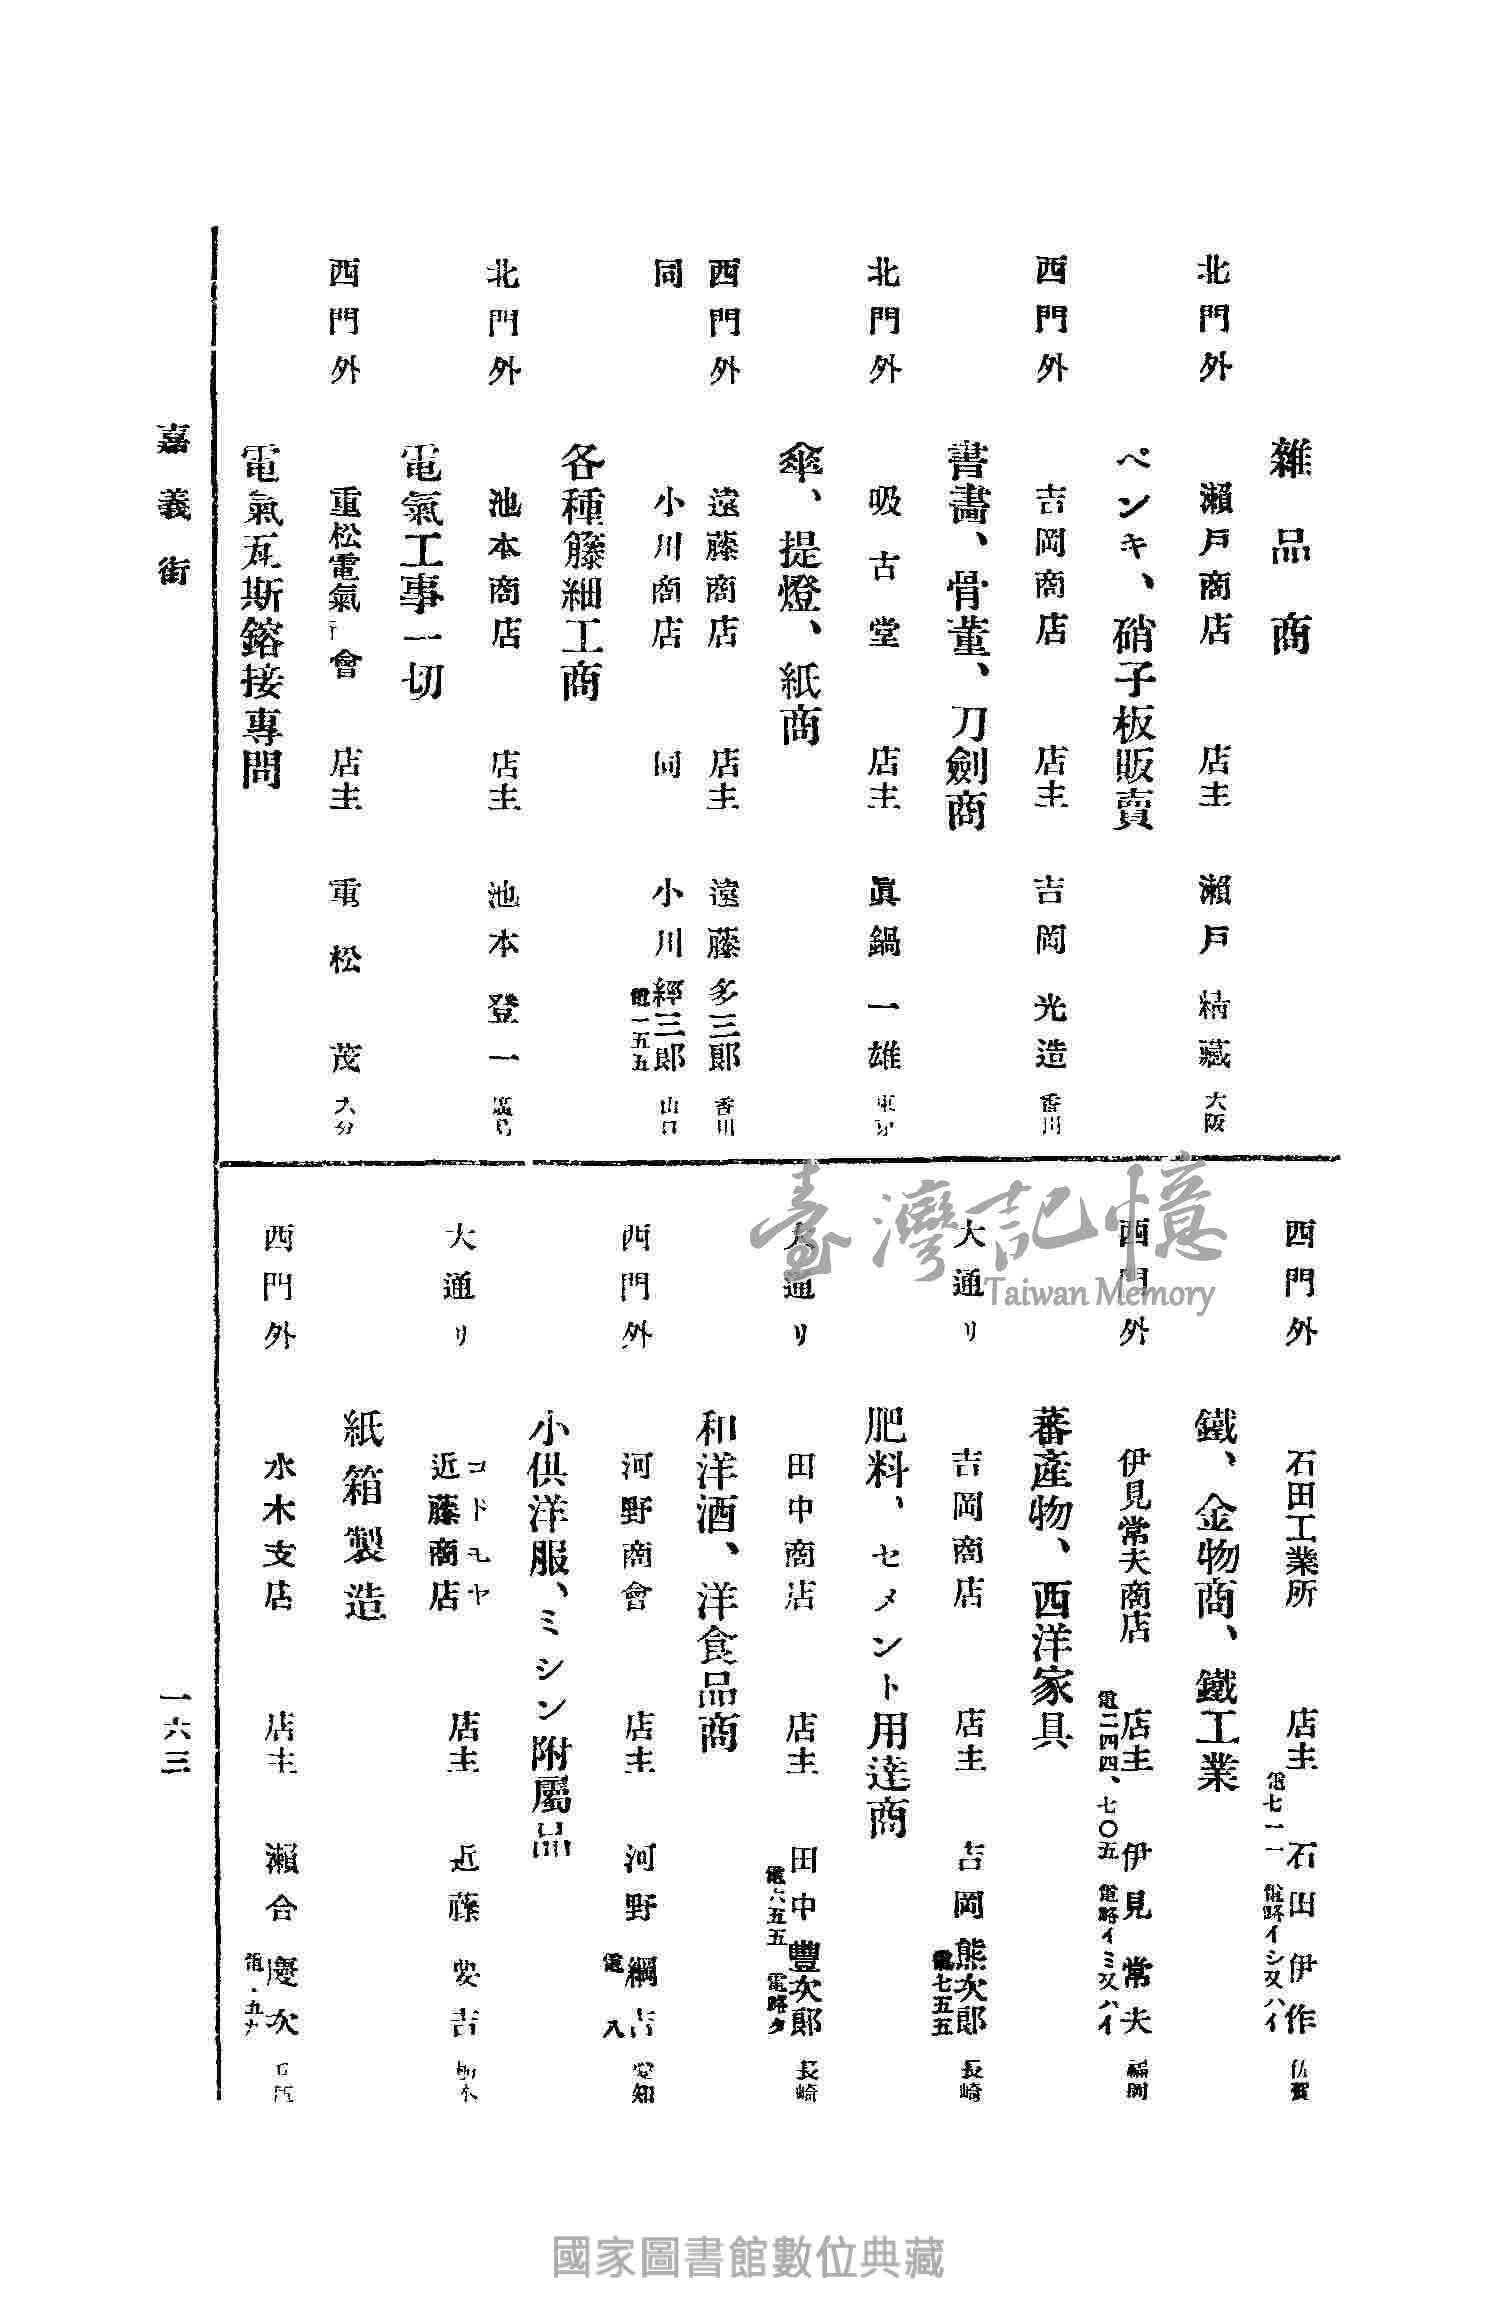 雜品商
北門外 瀨戶商店 店主 瀨戶精藏 大阪
ペンキ、硝子板販賣
西門外 吉岡商店 店主 吉岡光造 香川
書畫、骨董、刀劍商
北門外 吸古堂 店主 眞鍋一雄
傘、提燈、紙商
西門外 遠藤商店 店主 遠藤多三郎 香川
同 小川商店 同 小川經三郎 山口
電一五五
各種籐細工商
北門外 池本商店 店主 池本登一
電氣工事一切
西門外 重松電氣 會 店主 重松茂 大分
電氣瓦斯鎔接專門
西門外 石田工業所 店主 石田伊作 佐賀
電七一一 電略イシ又ハイ
鐵、金物商、鐵工業
西門外 伊見常夫商店 店主 伊見常夫 福岡
電二四四、七〇五 電略イミ又ハイ
蕃產物、西洋家具
大通リ 吉岡商店 店主 吉岡熊次郎 長崎
電七五五
肥料、セメント用達商
大通リ 田中商店 店主 田中豐次郎 長崎
電六五五 電略タ
和洋酒、洋食品商
西門外 河野商會 店主 河野綱吉 愛知
電 八
小供洋服、ミシン附屬品
コドモヤ
大通リ 近藤商店 店主 近藤安吉 栃木
紙箱製造
西門外 水木支店 店主 瀨合慶次
嘉義街
一六三
臺灣記憶
Taiwan Memory
國家圖書館數位典藏